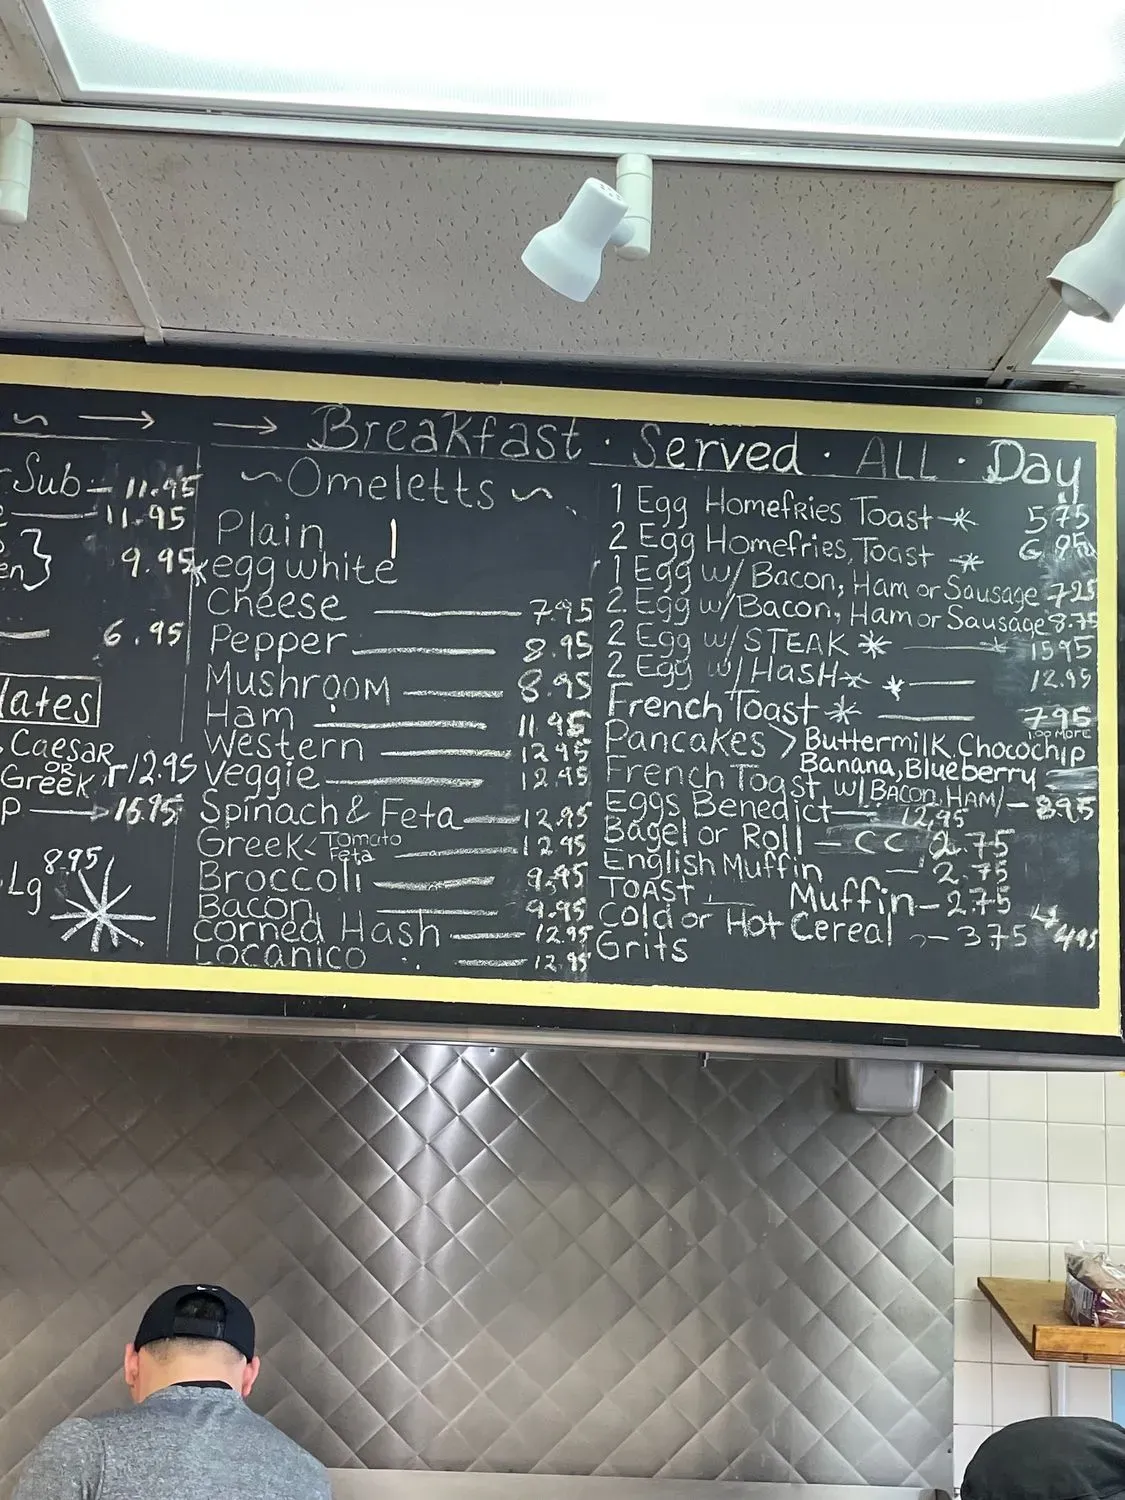 Sub 11.95
11.95
9.95
6.95
Caesar
or
Greek 12.95
15.95
Lg 8.95
Breakfast · Served · ALL · Day
~Omeletts~
Plain
*egg white
Cheese 7.95
Pepper 8.95
Mushroom 8.95
Ham 11.95
Western 12.95
Veggie 12.95
Spinach & Feta 12.95
Greek < Tomato Feta 12.95
Broccoli 9.95
Bacon 9.95
corned Hash 12.95
Locanico 12.95
1 Egg Homefries Toast * 5.75
2 Egg Homefries, Toast * 6.95
1 Egg w/ Bacon, Ham or Sausage 7.25
2 Egg w/ Bacon, Ham or Sausage 8.75
2 Egg w/ STEAK * 15.95
2 Egg w/ Hash * * 12.95
French Toast * 7.95
1.00 MORE
Pancakes > Buttermilk, Chocochip
Banana, Blueberry
French Toast w/ BACON, HAM/ - 8.95
Eggs Benedict 12.95
Bagel or Roll - CC 2.75
English Muffin - 2.75
TOAST Muffin - 2.75
Cold or Hot Cereal - 3.75 4.95
Grits